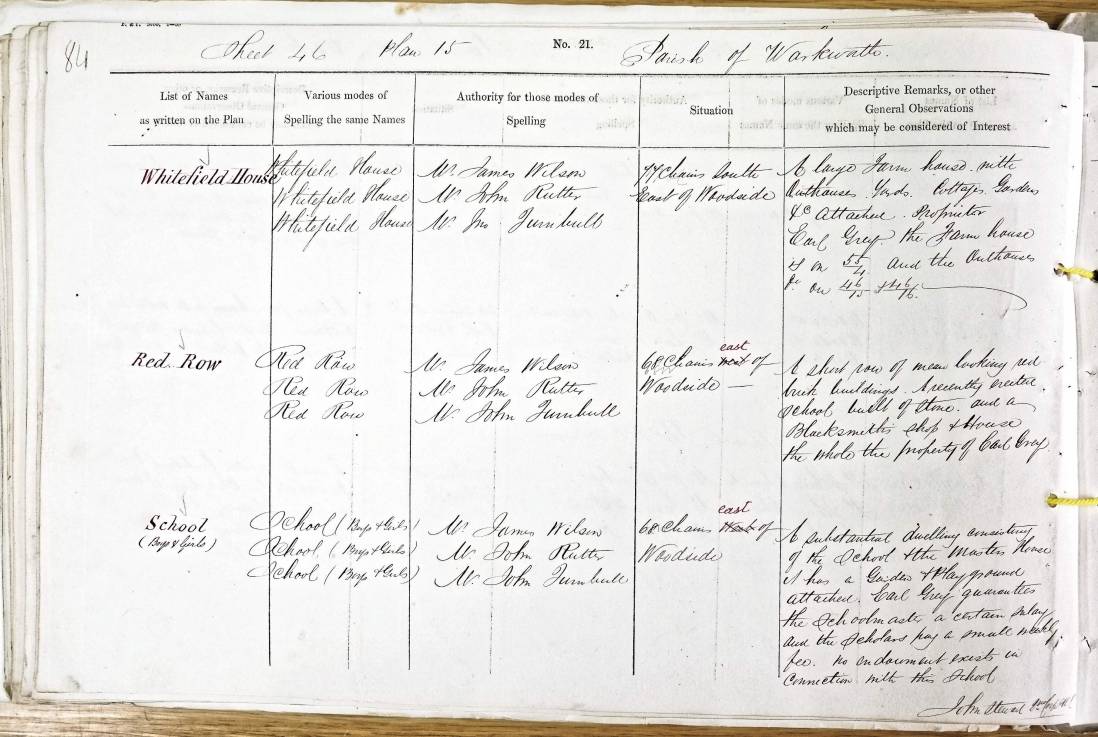 84
Sheet 46 Plan 15 No. 21. Parish of Warkworth.
List of Names
as written on the Plan
Various modes of
Spelling the same Names
Authority for those modes of
Spelling
Situation
Descriptive Remarks, or other
General Observations
which may be considered of Interest
Whitefield House
Whitefield House
Whitefield House
Whitefield House
Mr. James Wilson
Mr. John Rutter
Mr. Jno Turnbull
77 Chains South
East of Woodside
A large Farm house with
Outhouses Yards. Cottages. Gardens
&c Attached. Proprietor
Earl Grey. the Farm house
is on 55/4 and the Outhouses
&c on 46/15 & 46/16.
Red Row
Red Row
Red Row
Red Row
Mr. James Wilson
Mr. John Rutter
Mr. John Turnbull
east
68 Chains west of
Woodside —
A short row of mean looking red
brick buildings. A recently erected
School built of Stone. and a
Blacksmith's Shop & House
the whole the property of Earl Grey
School
(Boys & Girls)
School (Boys & Girls)
School (Boys & Girls)
School (Boys & Girls)
Mr. James Wilson
Mr. John Rutter
Mr. John Turnbull
east
68 Chains West of
Woodside
A substantial dwelling consisting
of the School & the Masters House
it has a Garden & Playground
attached. Earl Grey guarantees
the Schoolmaster a certain salary
and the Scholars pay a small weekly
fee. no endowment exists in
connection with this School
John Steward